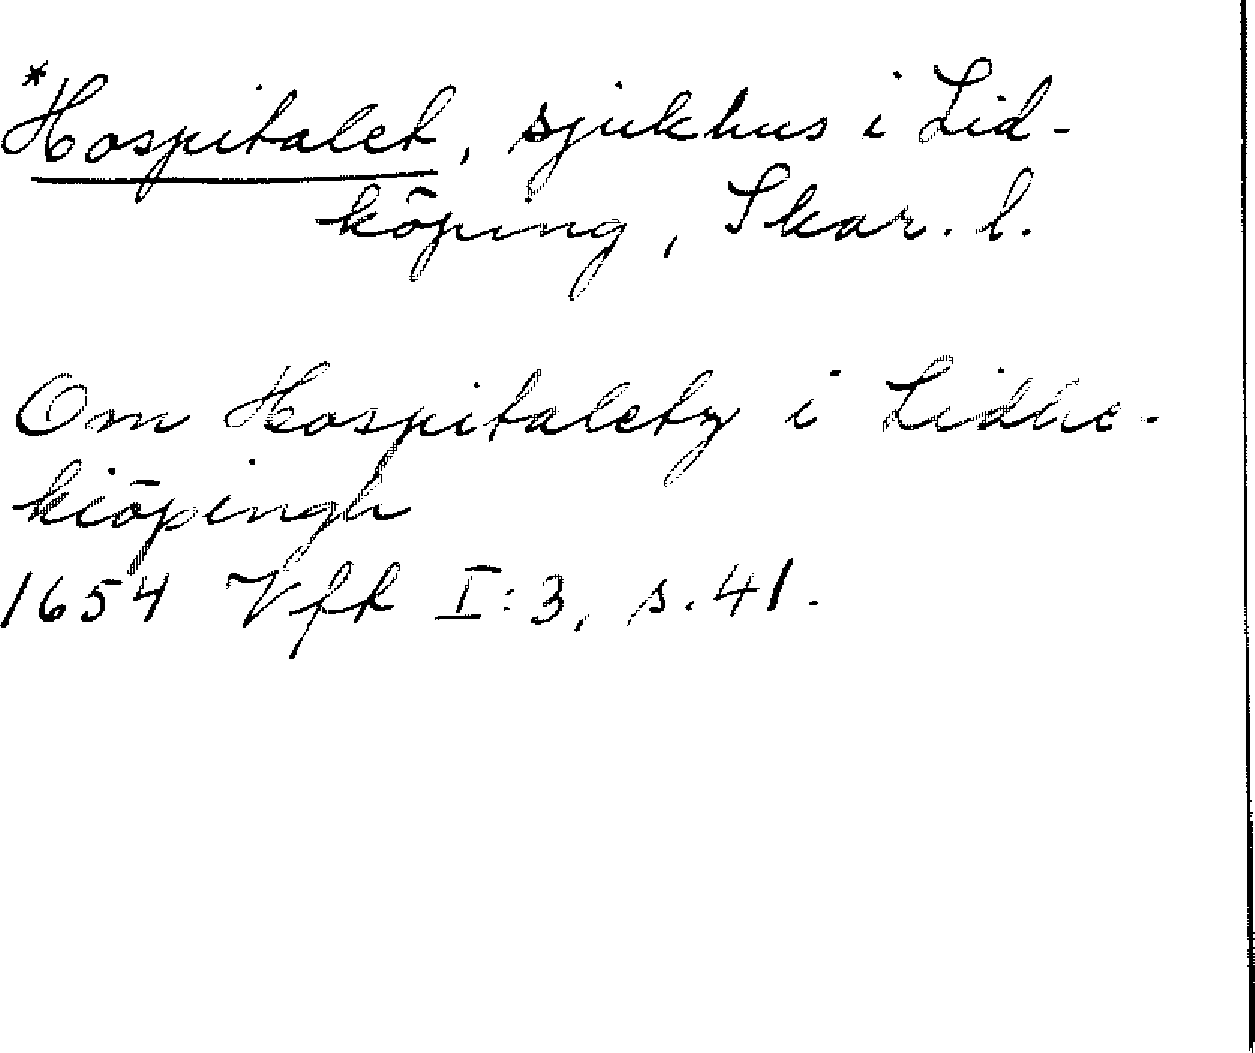 *Hospitalet, sjukhus i Lid-
köping, Skar. l.
Om Hospitaletz i Lidhe-
kiöpingh
1654 Vfk I:3, s. 41.